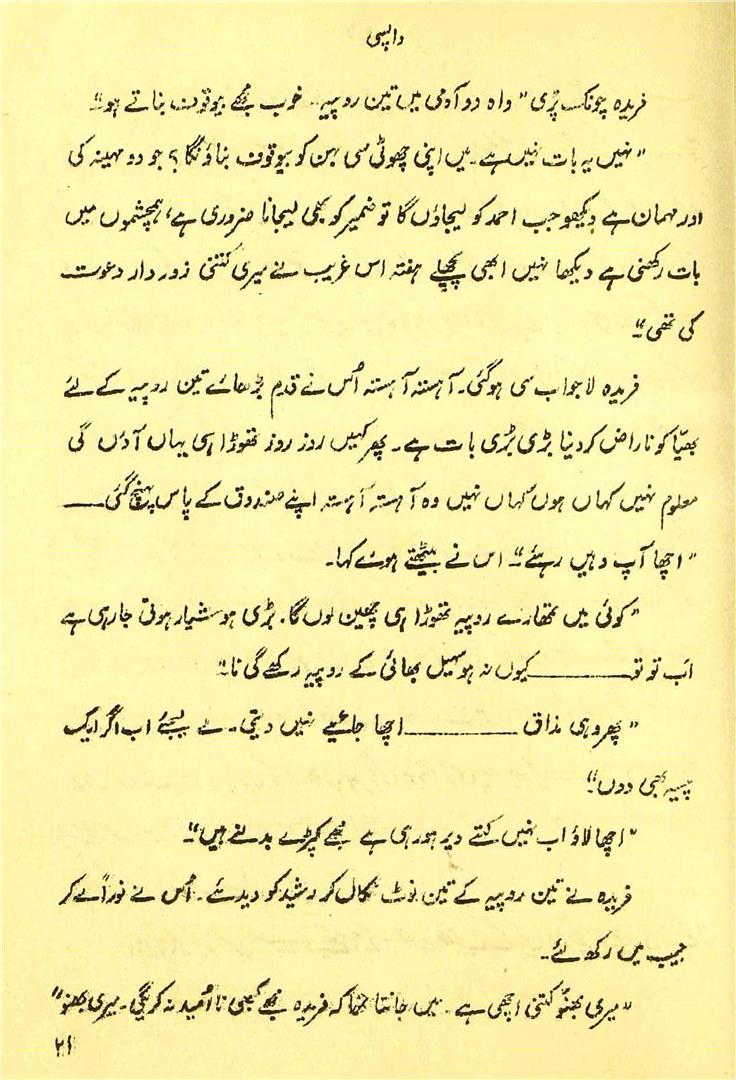 واپسی
فریدہ چونک پڑی " واہ دو آدمی میں تین روپیہ۔ خوب مجھے بیوقوف بناتے ہو"
"نہیں یہ بات نہیں ہے۔ میں اپنی چھوٹی سی بہن کو بیوقوف بناؤنگا؟ جو دو مہینہ کی
اور مہمان ہے دیکھو جب احمد کو لیجاؤں گا تو ضمیر کو بھی لیجانا ضروری ہے، ہمچشموں میں
بات رکھنی ہے دیکھا نہیں ابھی پچھلے ہفتہ اس غریب نے میری کتنی زور دار دعوت
کی تھی"
فریدہ لاجواب سی ہوگئی۔ آہستہ آہستہ اُس نے قدم بڑھائے تین روپیہ کے لئے
بھیّا کو ناراض کردینا بڑی بڑی بات ہے۔ پھر کہیں روز روز تھوڑا ہی یہاں آؤں گی
معلوم نہیں کہاں ہوں کہاں نہیں وہ آہستہ آہستہ اپنے صندوق کے پاس پہنچ گئی ——
"اچھا آپ وہیں رہئے" اس نے بیٹھتے ہوئے کہا۔
"کوئی میں تمھارے روپیہ تھوڑا ہی چھین لوں گا۔ بڑی ہوشیار ہوتی جارہی ہے
اب تو تو ———— کیوں نہ ہو سہیل بھائی کے روپیہ رکھے گی نا"
"پھر وہی مذاق ———— اچھا جائیے نہیں دیتی۔ لے لیجئے اب اگر ایک
پیسہ بھی دوں"
"اچھا لاؤ اب نہیں کہتے دیر ہورہی ہے مجھے کپڑے بدلنے ہیں"
فریدہ نے تین روپیہ کے تین نوٹ نکال کر رشید کو دیدئے۔ اُس نے فوراً لے کر
جیب میں رکھ لئے۔
"میری بھنّو کتنی اچھی ہے۔ میں جانتا تھا کہ فریدہ مجھے کبھی نا اُمید نہ کریگی۔ میری بھنّو"
۲۱